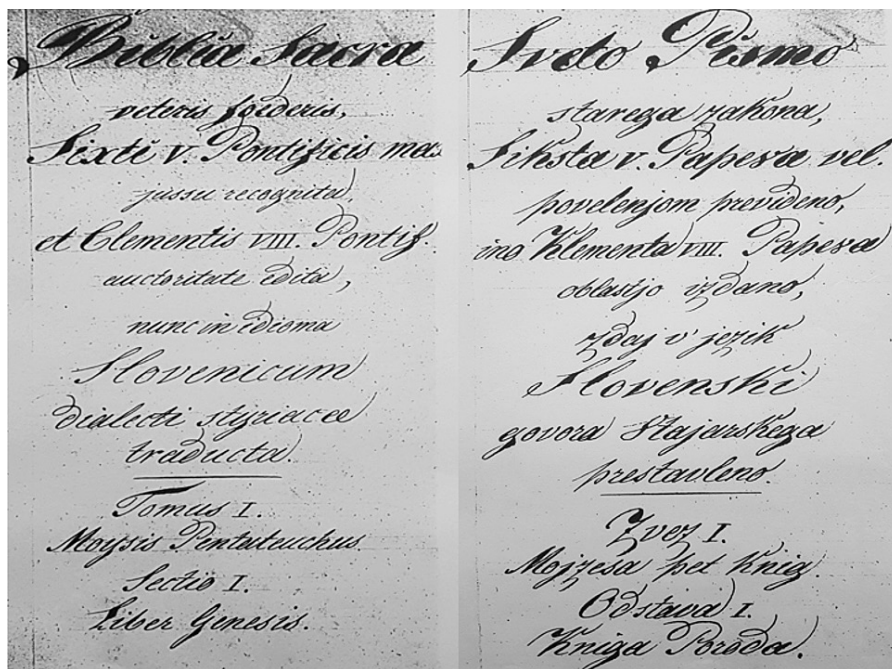 Biblia Sacra
veteris foederis,
Sixti V. Pontificis max
jussu recognita,
et Clementis VIII. Pontif.
auctoritate edita,
nunc in idioma
Slovenicum
dialecti styriacae
traducta.
Tomus I.
Moysis Pentateuchus
Sectio I.
Liber Genesis.
Sveto Pismo
starega zakona,
Siksta V. Papeža vel.
povelenjom prevideno,
ino Klementa VIII. Papeža
oblastjo izdano,
zdaj v' jezik
Slovenski
govora Štajarskega
prestavleno.
Zvez I.
Mojzesa pet Knig.
Odstava I.
Kniga Poroda.